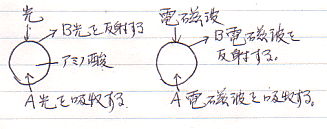 光
B光を反射する
アミノ酸
A光を吸収する.
電磁波
B電磁波を
反射する。
A電磁波を吸収する。